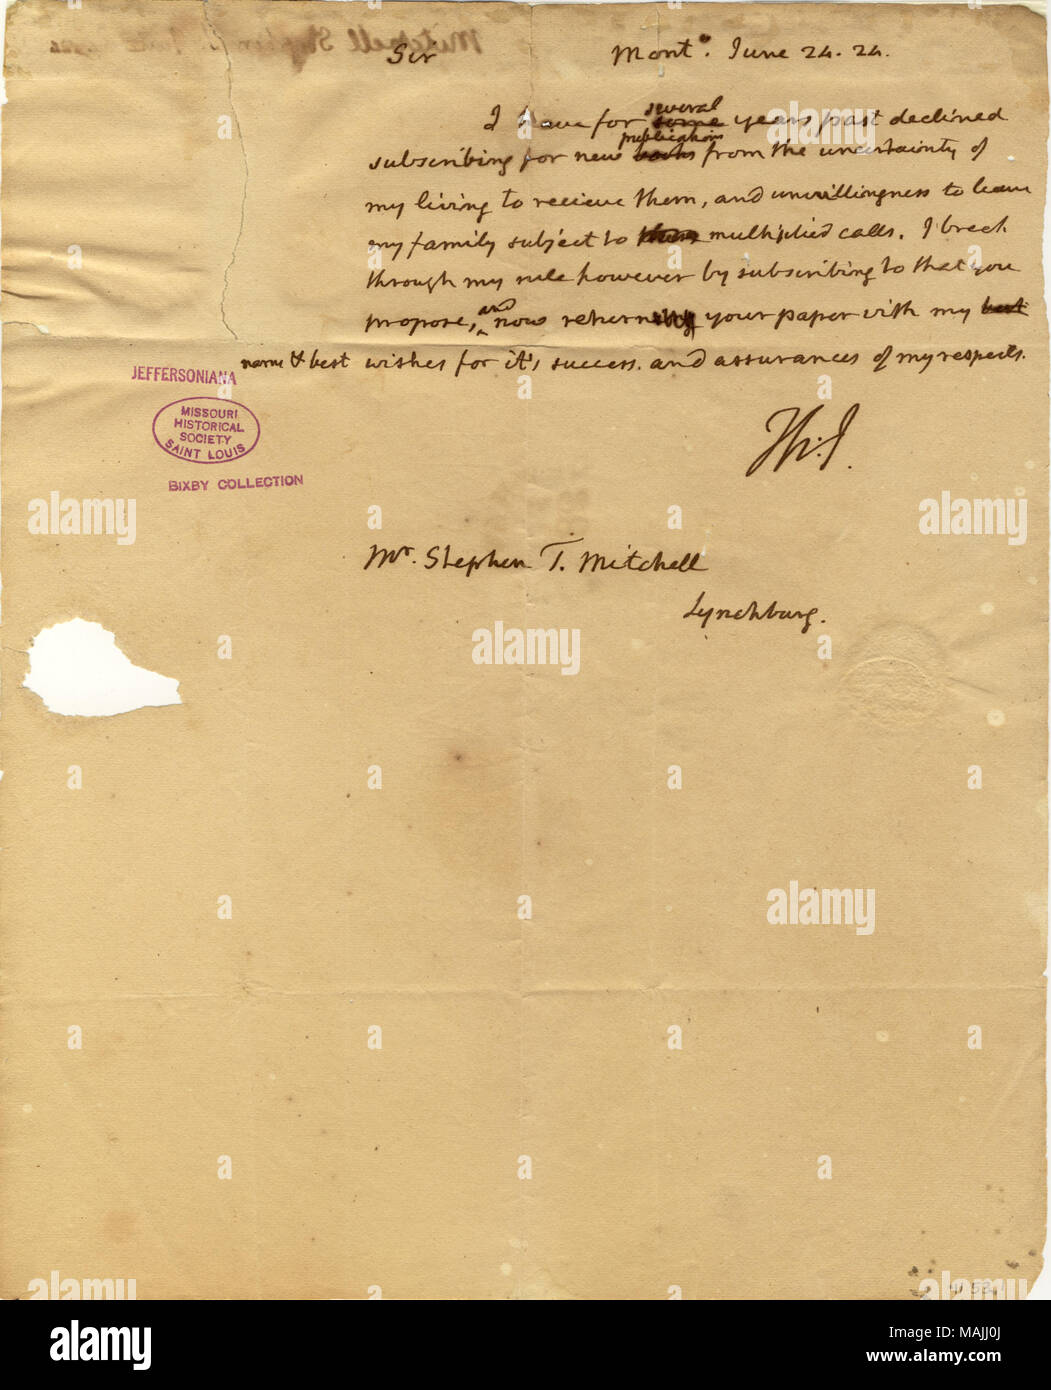 Sir Monto. June 24. 24.
I have for several some years past declined
subscribing for new publications books from the uncertainty of
my living to recieve them, and unwillingness to leave
my family subject to multiplied calls. I break
through my rule however by subscribing to that you
propose, and now returning your paper with my best
name & best wishes for it's success. and assurances of my respects.
Th:J.
Mr. Stephen T. Mitchell
Lynchburg.
JEFFERSONIANA
MISSOURI
HISTORICAL
SOCIETY
SAINT LOUIS
BIXBY COLLECTION
alamy
Image ID: MAJJ0J
www.alamy.com